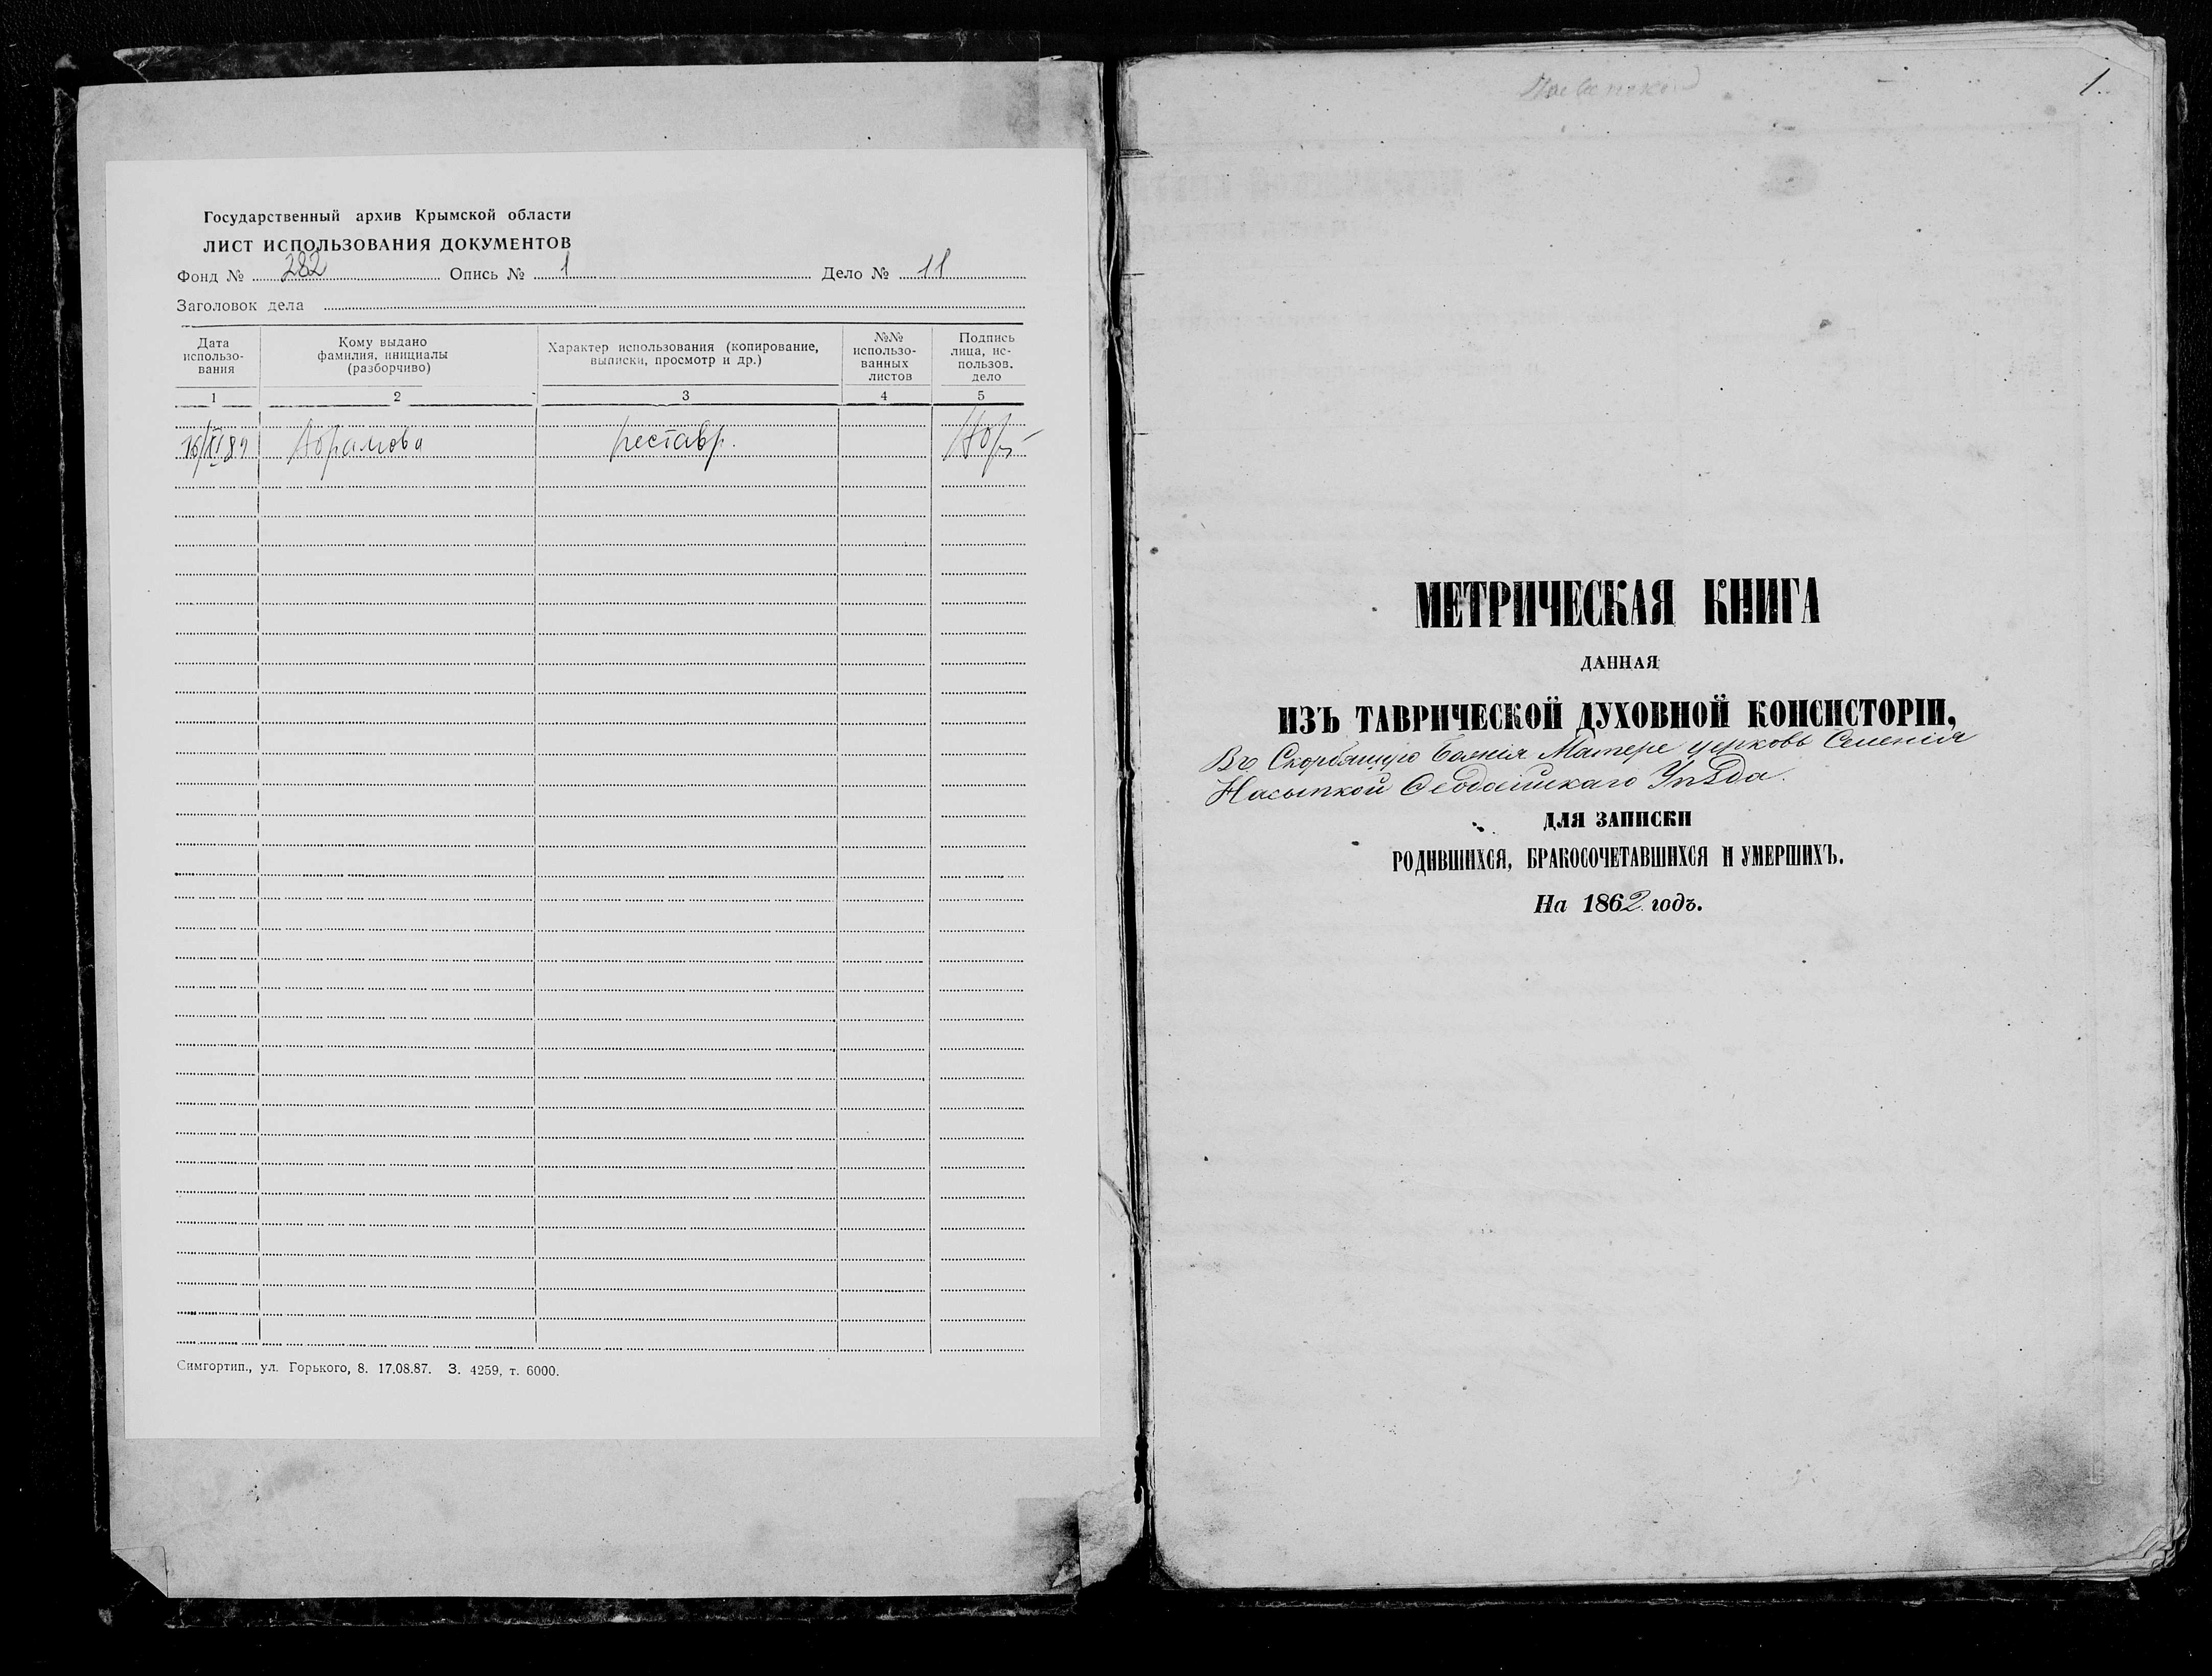 Государственный архив Крымской области
ЛИСТ ИСПОЛЬЗОВАНИЯ ДОКУМЕНТОВ
Фонд № 282 Опись № 1 Дело № 11
Заголовок дела
Дата использо-вания
Кому выдано фамилия, инициалы (разборчиво)
Характер использования (копирование, выписки, просмотр и др.)
№№ использо-ванных листов
Подпись лица, ис-пользов. дело
1 2 3 4 5
16/XI 89 Абрамова реставр.
Симгортип., ул. Горького, 8. 17.08.87. З. 4259, т. 6000.
1
МЕТРИЧЕСКАЯ КНИГА
ДАННАЯ
ИЗЪ ТАВРИЧЕСКОЙ ДУХОВНОЙ КОНСИСТОРІИ,
Въ Скорбящую Божія Матере церковь Селенія
Насыпкой Ѳеодосійскаго Уѣзда.
ДЛЯ ЗАПИСКИ
РОДИВШИХСЯ, БРАКОСОЧЕТАВШИХСЯ И УМЕРШИХЪ.
На 1862 годъ.